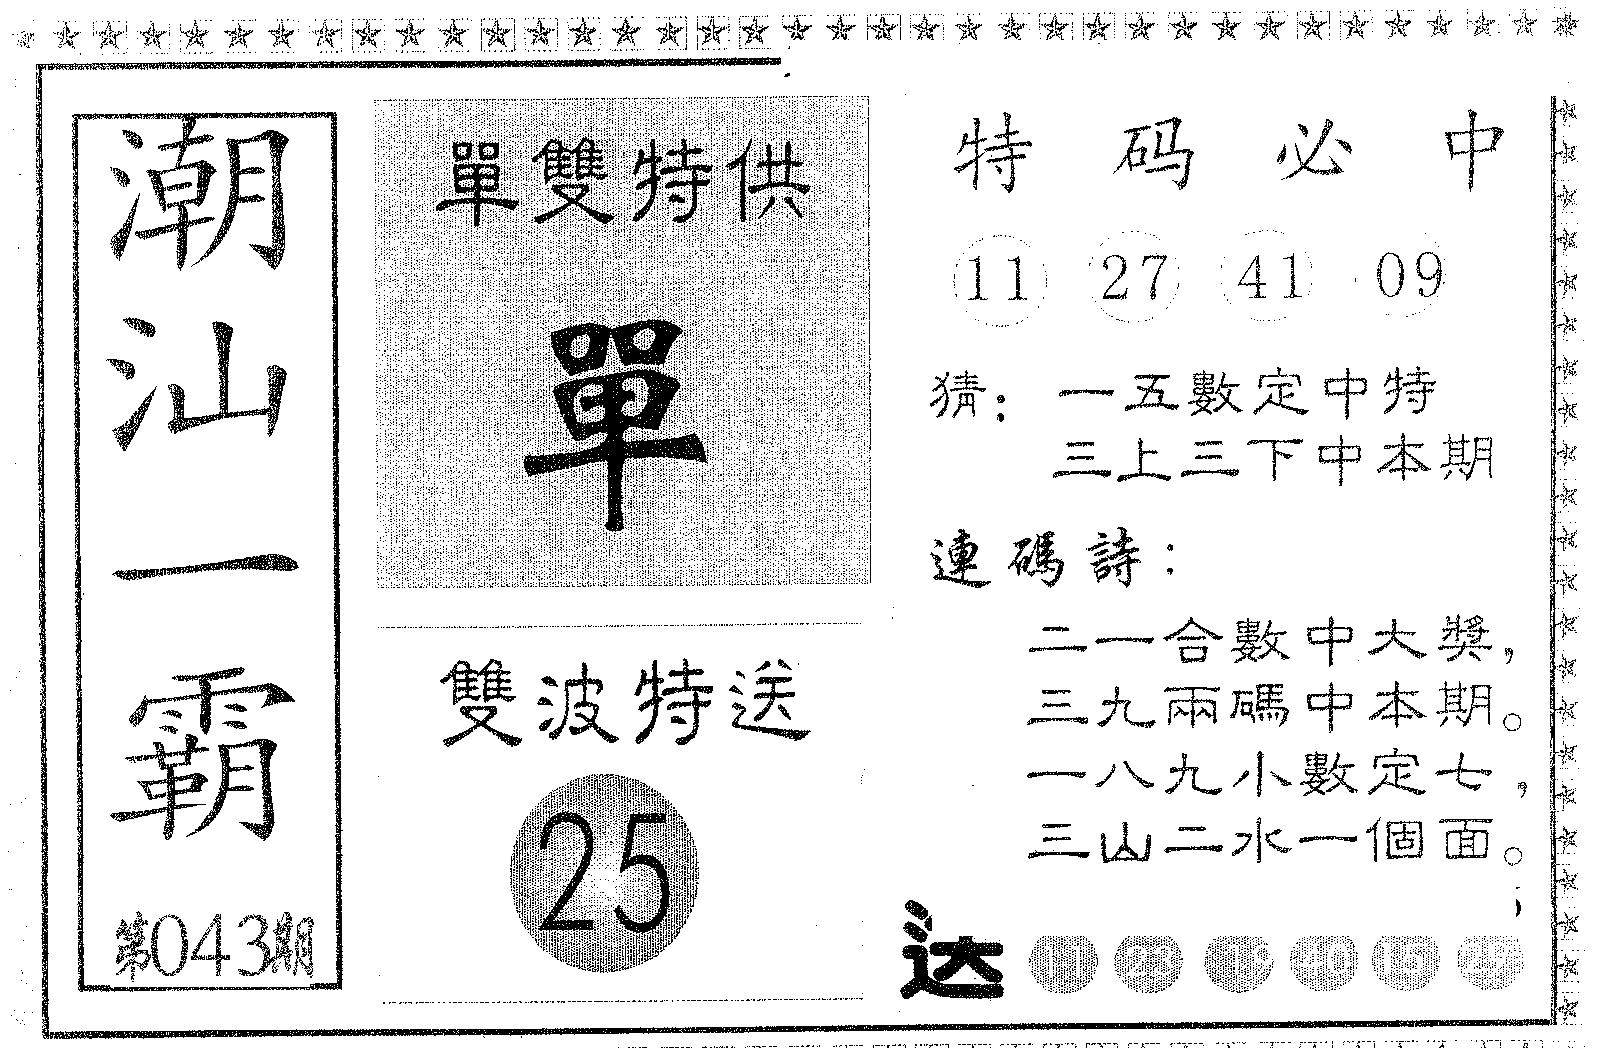 潮汕一霸
第043期
單雙特供
單
雙波特送
25
特码必中
11 27 41 09
猜：一五數定中特
三上三下中本期
連碼詩：
二一合數中大獎，
三九兩碼中本期。
一八九小數定七，
三山二水一個面。
送